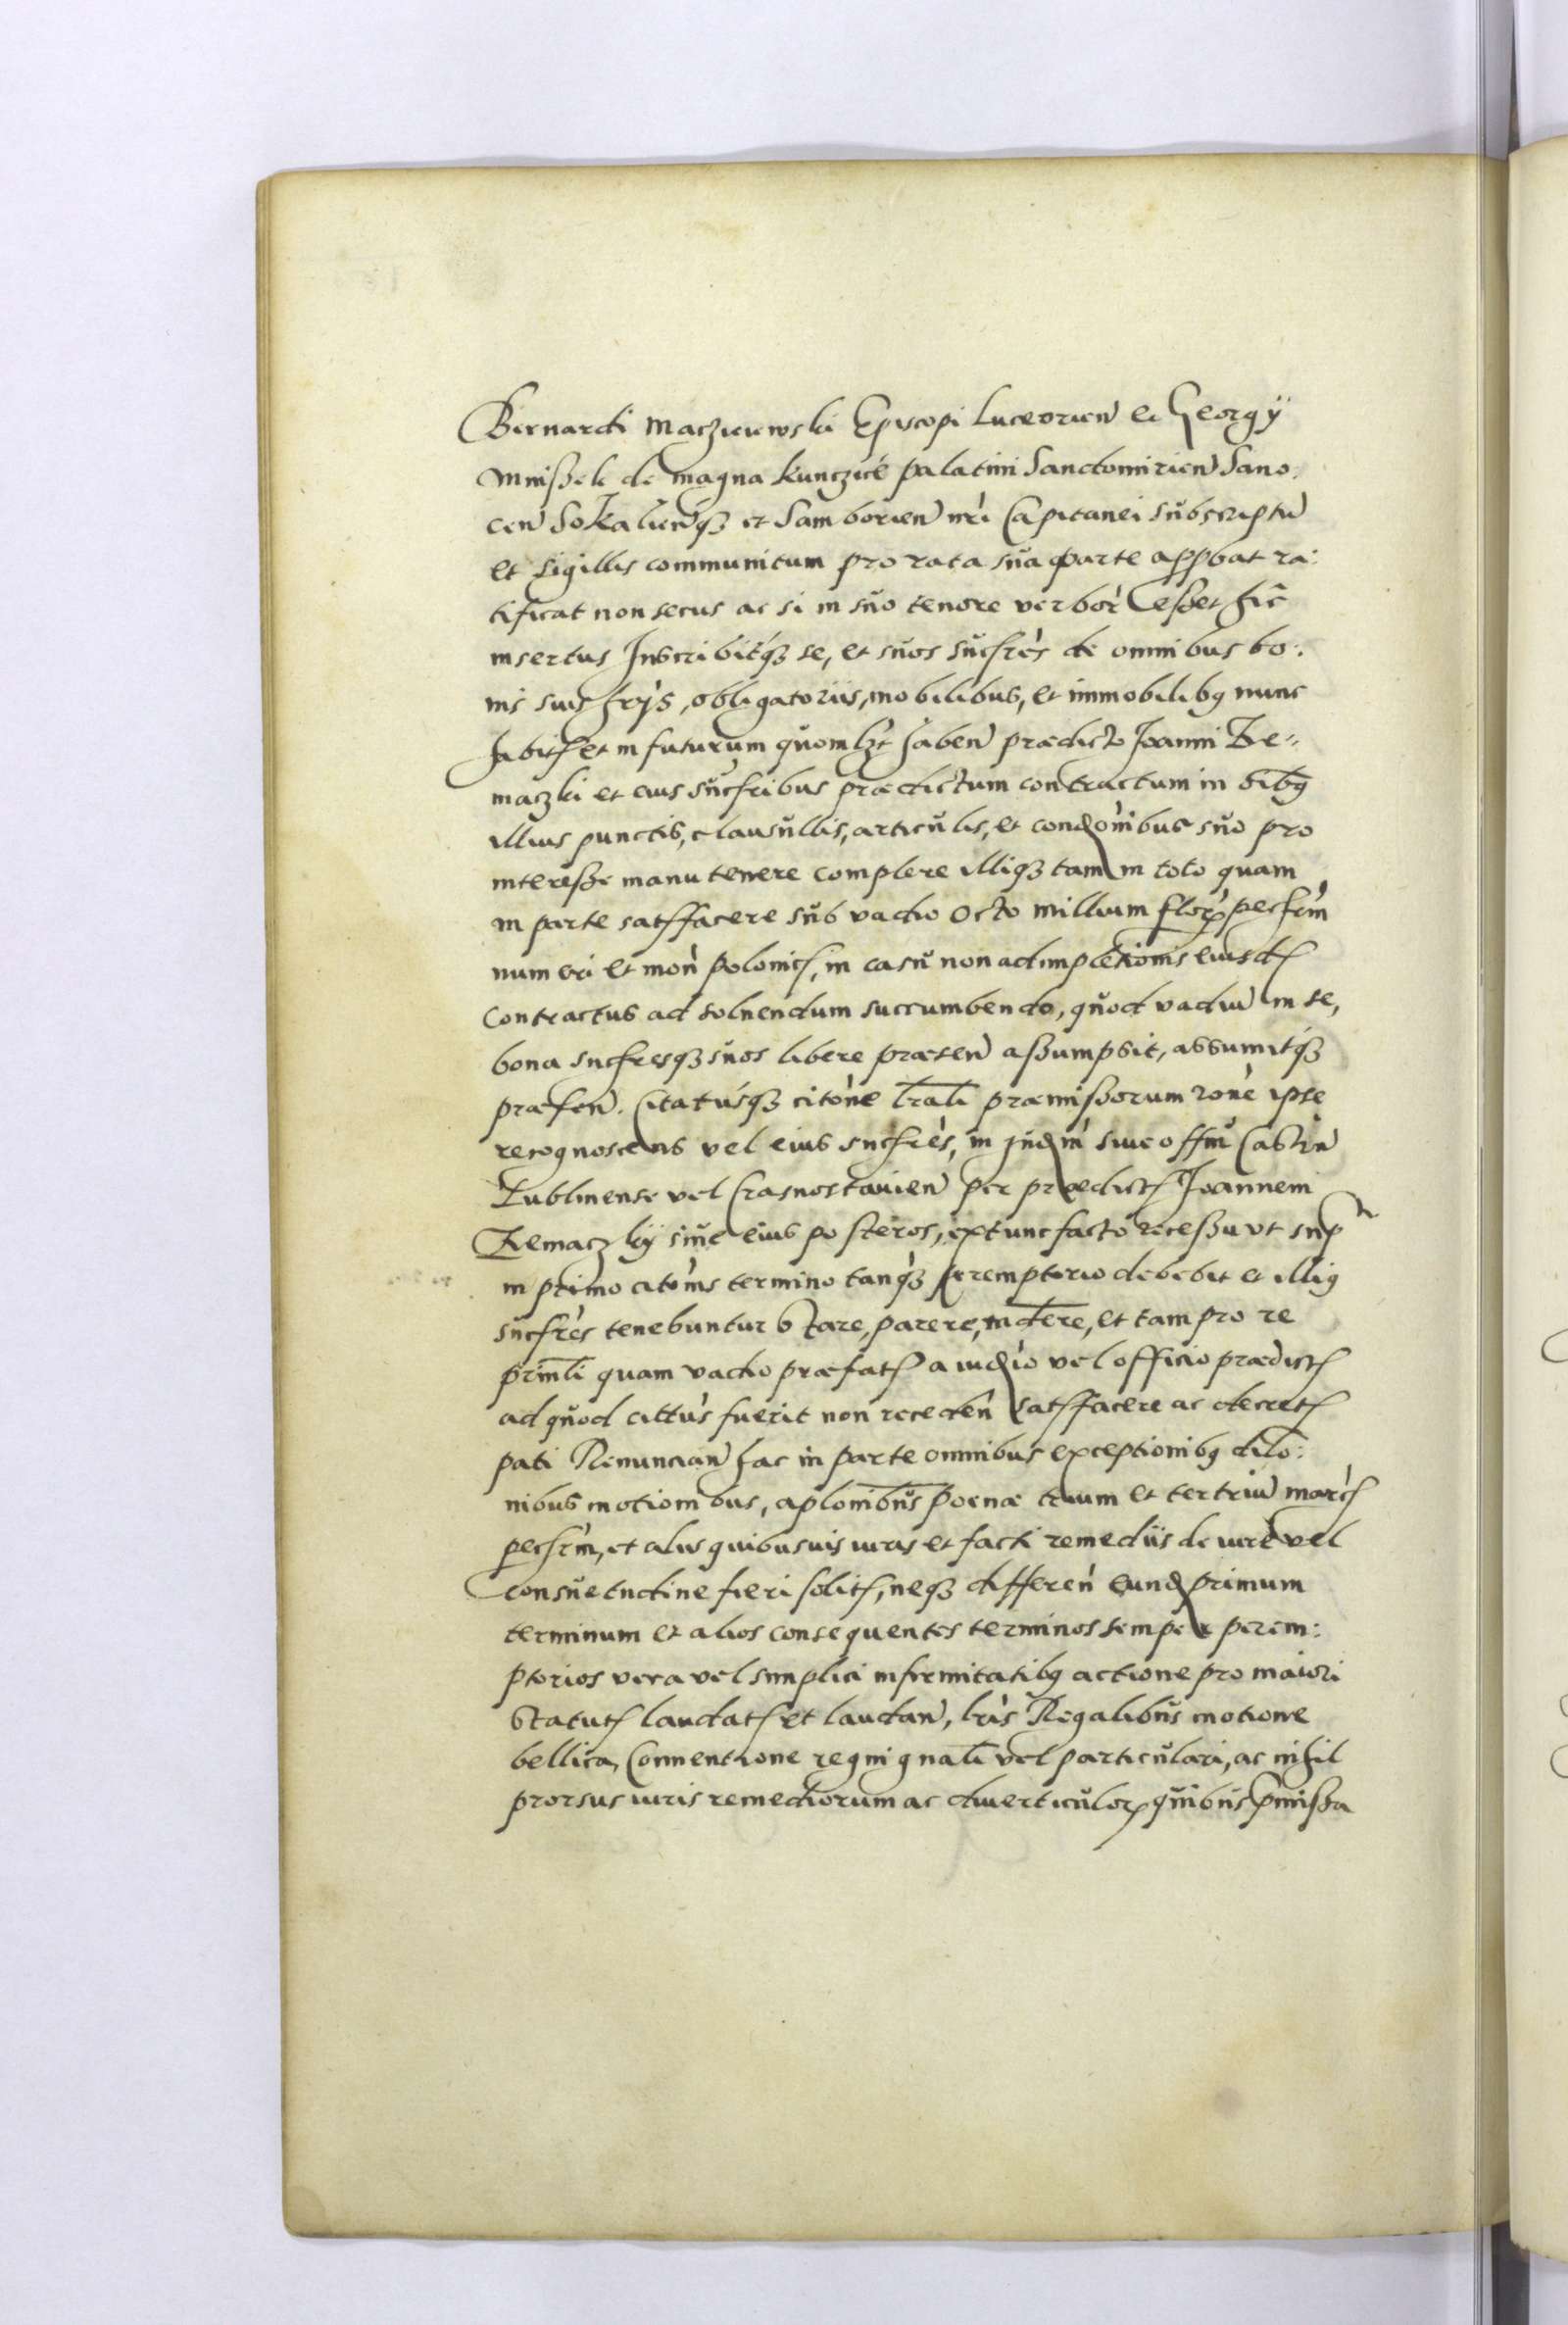 Bernardi Maczieiewski Episcopi Luceorien et Georgÿ
Mnißek de magna Kunczicé palatini Sandomirien Sano:
cen Sokalienq3 et Samborien nrì Capitanei sŭbscriptū
et sigillis communitum pro rata sŭa parte appbat ra:
tificat non secus ac si in sŭo tenore verbor eßet hic
insertus Inscribitq3 se, et sŭos sŭcfrès de omnibus bo:
nis suis hrÿs, obligatoriis, mobilibus, et immobilibg nunc
habitis et in futurum qŭomlzt haben prædicto Joanni Ze=
maczki et eius sŭcfribus prædictum contractum in oibg
illius punctis, clausŭllis, articŭlis, et condonibus sŭo pro
intereße manu tenere complere illiq3 tam in toto quam
in parte satffacere sŭb vadio Octo millium flor pecfrm
numeri et mon polonics, in casŭ non adimpletionis eiusds
Contractus ad solnendum succumbendo, qŭod vadiū in se,
bona sncfresq3 sŭos libere præsen aßumpsit, assumitq3
præsen. Citatúsq3 citòne lrali præmißorum ròne ipse
recognoscens vel eius sncfrès, in jndm siue offm Castrn
Lublinense vel Crasnostauien per prædicts Joannem
Zemaczkÿ siŭe eius posteros, extunc facto receßu vt snp
in primo citonis termino tanq3 peremptorio debebit et illig
sŭcfrès tenebuntur stare, parere, rndere, et tam pro re
prinli quam vadio præfats a iudio vel officio prædicts
ad qŭod cittùs fuerit non receden satffacere ac decrets
pati Renuncian hac in parte omnibus exceptionibg dilo:
nibus motionibus, aplonibŭs poenæ trium et tertriū marcs
pecfrm, et aliis quibusuis iuris et facti remediis de iure vel
consŭetudine fieri solits, neq3 differen eund primum
terminum et alios consequentes terminos semper perem:
ptorios vera vel simplici infirmitatibg actione pro maiori
statuts laudats et laudan, lris Regalibŭs motione
bellica, Conuentione regni gnali vel particŭlari, ac nihil
prorsus iuris remediorum ac diuerticŭlor qŭibŭs pmißa